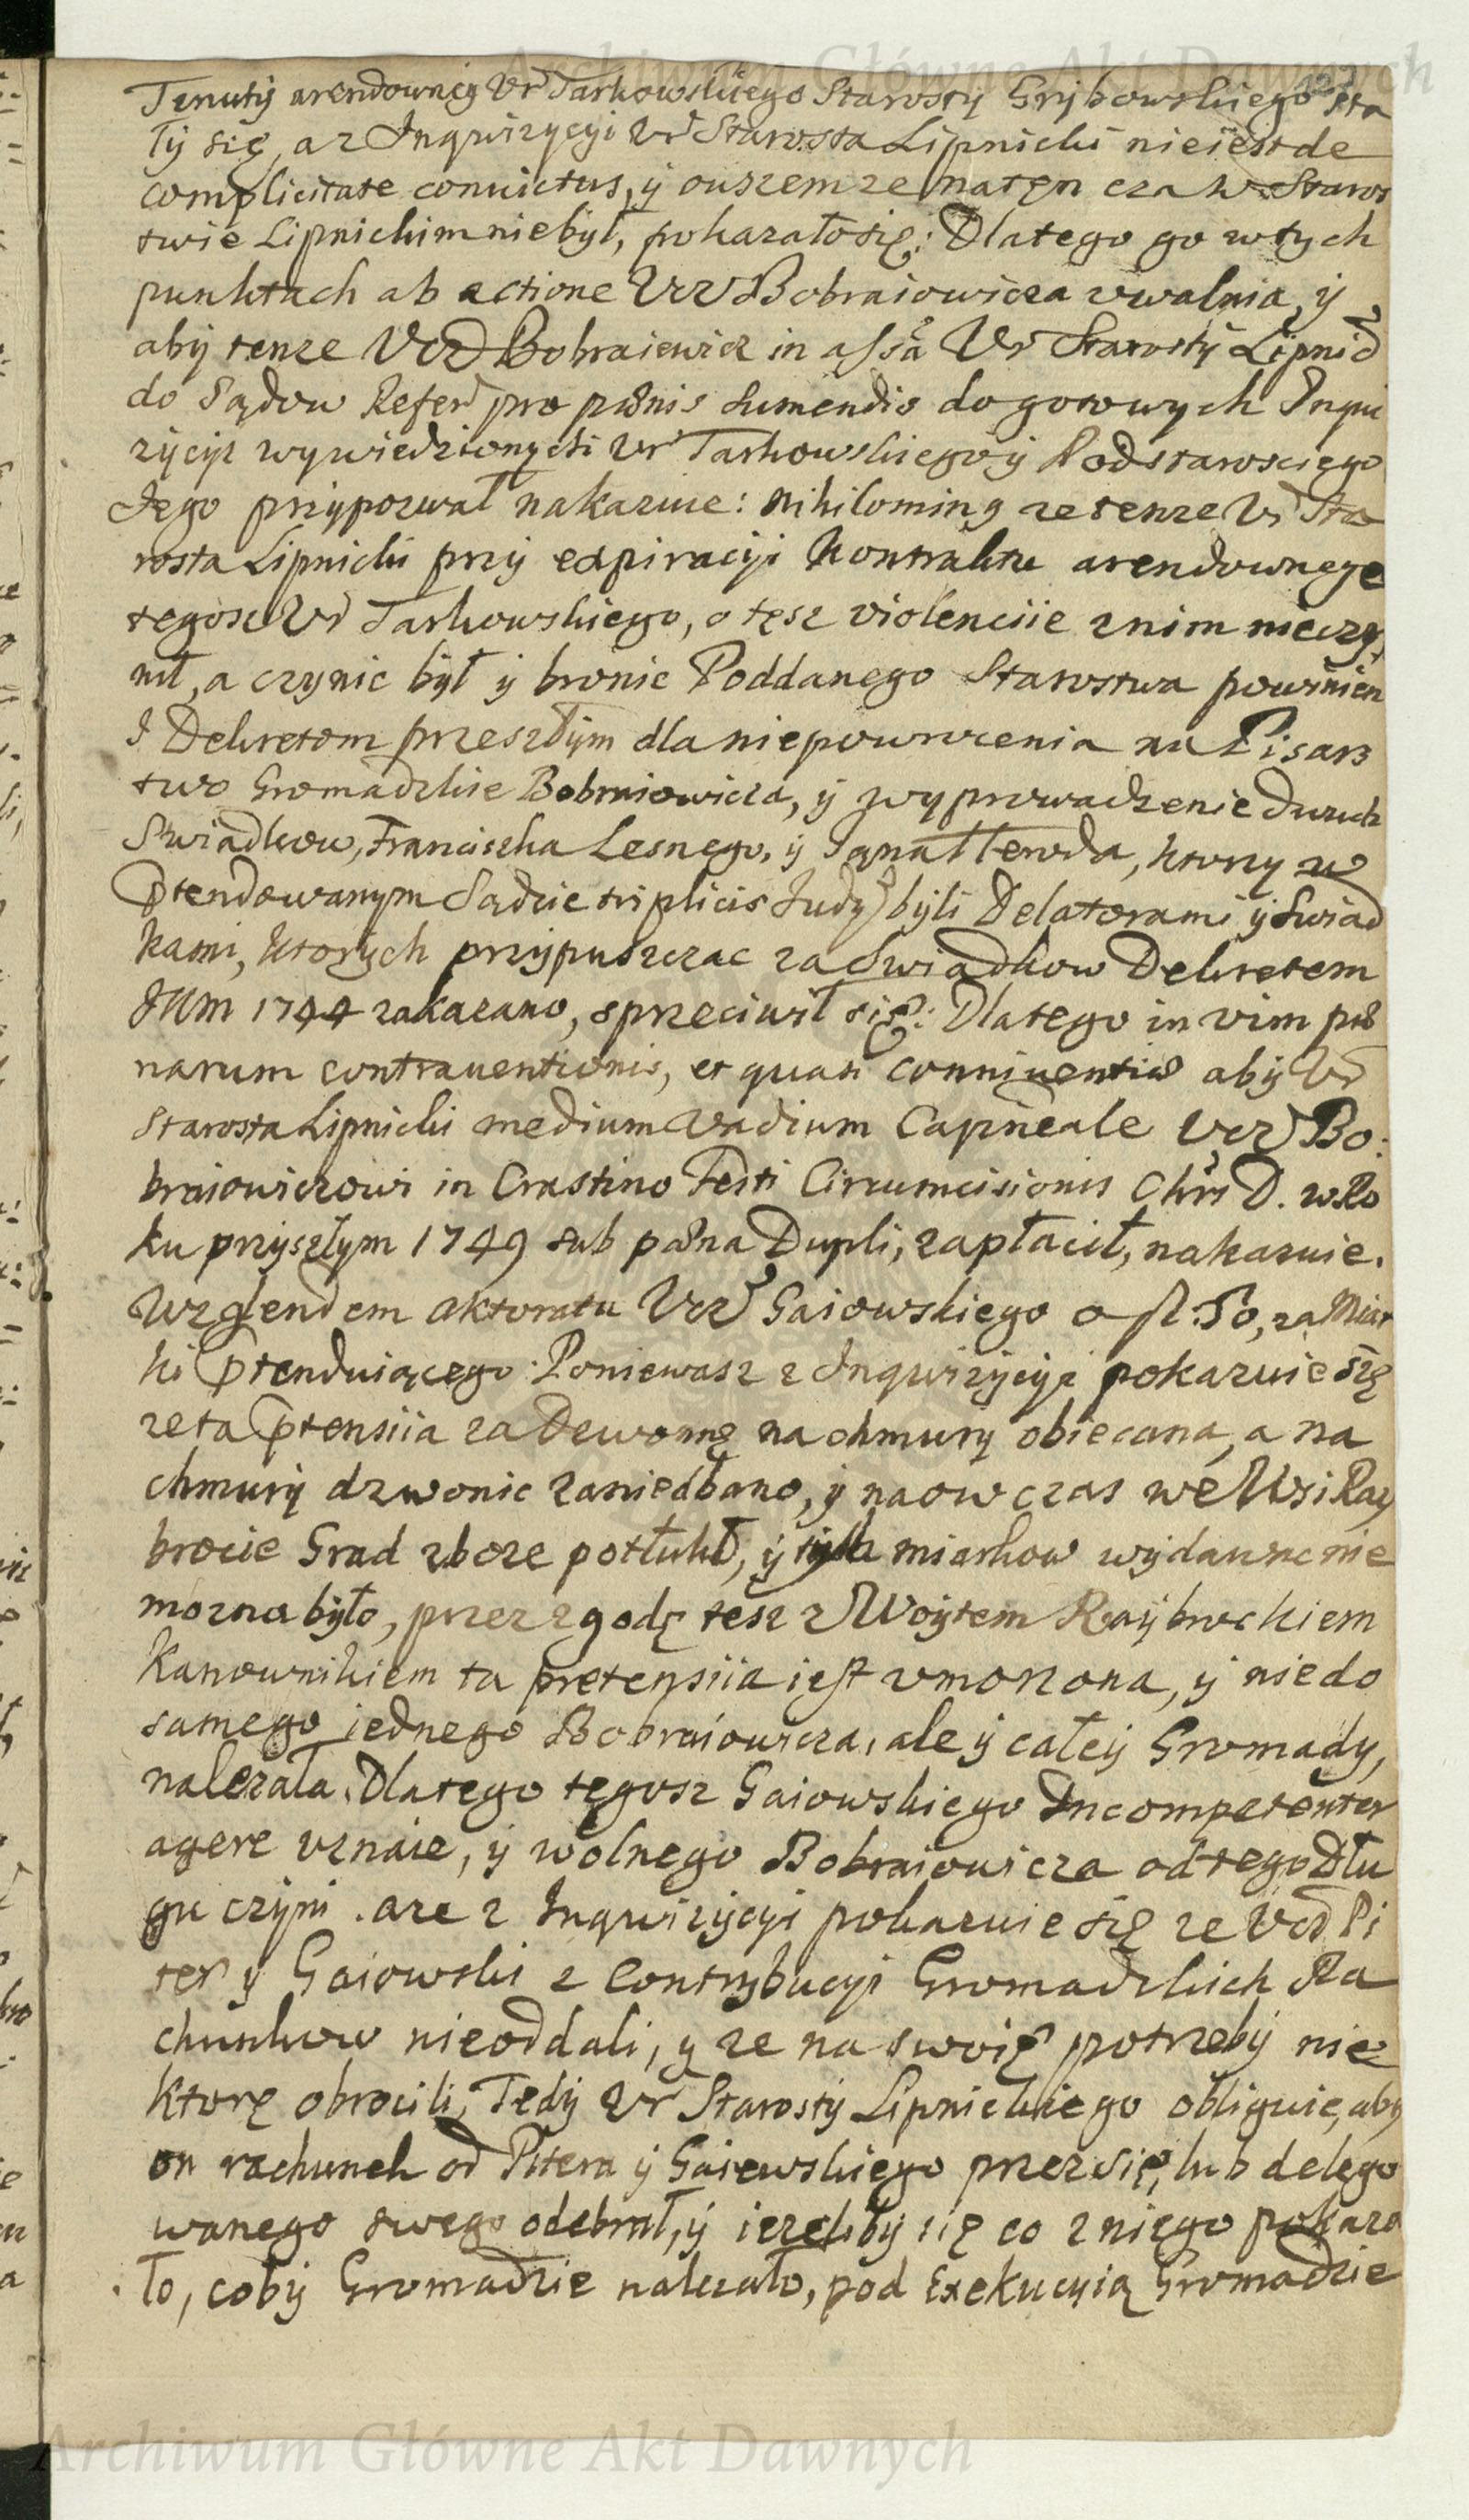 Archiwum Główne Akt Dawnych
Tenuty arendowney Ur Tarkowskiego Starosty Grybowskiego sta
ły się, a z Inqwizycyi Ur Starosta Lipnicki nieiest de
complicitate convictus, y owszem ze natęn czas w Staros
twie Lipnickim niebył, pokazało się: Dlatego go w tych
punktach ab actione Ucz Bobraiowicza uwalnia, y
aby tenze Ucz Bobraiewicz in assa Ur Starosty Lipnic
do Sądow Refer pro pænis sumendis do gotowych Inqui
zycyi wywiedzionych Ur Tarkowskiego y Podstarosciego
Jego przypozwał nakazuie: Nihilominq ze tenze Ur Sta
rosta Lipnicki przy expiracyi Kontraktu arendownego
tegosz Ur Tarkowskiego, o tęsz violenciie znim nieczy
nił, a czynic był y bronic Poddanego Starostwa powinien
I Dekretom przeszłym dla niepowrocenia na Pisars
two Gromadzkie Bobraiowicza, y wyprowadzenie dwuch
Swiadkow, Franciszka Lesnego, y Ignatt, ktorzy w
Ptendowanym Sądzie triplicis Judy byli Delatorami y Swiad
kami, ktorych przypuszczac za Swiadkow Dekretem
JKM 1744 zakazano, sprzeciwił się: Dlatego in vim pæ
narum contraventionis, et quasi conniventiæ aby Ur
Starosta Lipnicki medium Vadium Capneale Ucz Bo:
braiowiczowi in Crastino Festi Circumcisionis Chris D. w Ro
ku przyszłym 1749 sub pæna Dupli, zapłacił, nakazuie.
Względem aktoratu Ucz Gaiowskiego o fl. 50, za Miar
ki Ptenduiącego: Poniewasz z Inqwizycyi pokazuie się
ze ta Ptensiia za Dzwonnę na chmury obiecana, a na
chmury dzwonic zaniedbano, y naowczas we Wsi Ray
brocie Grad zboze potłukł, y tych miarkow wydawac nie
mozna było, przez zgodę tesz z Woytem Raybrockiem
Kanownikiem ta pretensiia iest umorzona, y niedo
samego iednego Bobraiowicza, ale y całey Gromady,
nalezała. Dlatego tęgosz Gaiowskiego Incompetenter
agere uznaie, y wolnego Bobraiowicza od tego Dłu
gu czyni. a ze z Inqwizycyi pokazuie się ze Ucz Pi
ter y Gaiowski z Contrybucyi Gromadzkich Ra
chunkow nieoddali, y ze na swoię potrzeby nie
ktorę obrocili, Tedy Ur Starosty Lipnickiego obliguie, aby
on rachunek od Pitera y Gaiewskiego przez się, lub delego
wanego swego odebrał, y iezeliby się co z niego pokaza
ło, coby Gromadzie nalezało, pod Exekucyią Gromadzie
Archiwum Główne Akt Dawnych